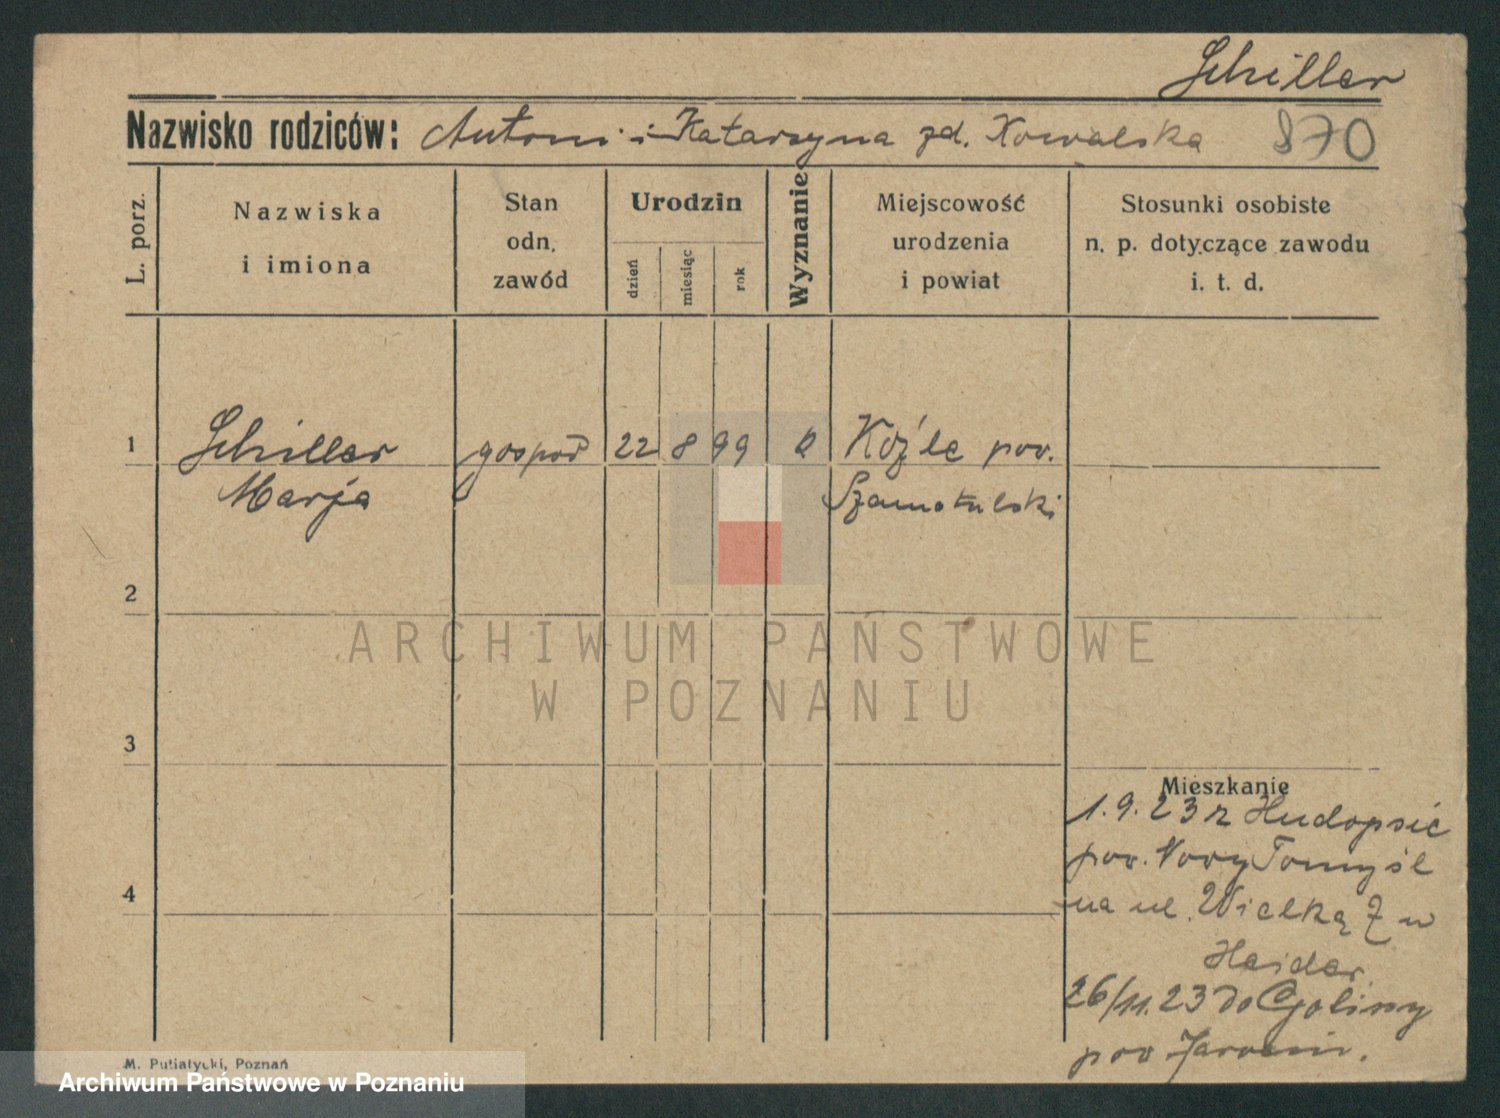 Schiller
Nazwisko rodziców: Antoni i Katarzyna zd. Kowalska 870
L. porz.
Nazwiska
i imiona
Stan
odn.
zawód
Urodzin
dzień
miesiąc
rok
Wyznanie
Miejscowość
urodzenia
i powiat
Stosunki osobiste
n. p. dotyczące zawodu
i. t. d.
1
Schiller
Marja
gospod
22 8 99
Koźle pow.
Szamotulski
2
ARCHIWUM PAŃSTWOWE
W POZNANIU
3
Mieszkanie
1.9.23 z Hudopsic
pow. Nowy Tomyśl
na ul. Wielką 7 w
Heider
4
26/11.23 do Goliny
pow Jarocin.
M. Putiatycki, Poznań
Archiwum Państwowe w Poznaniu